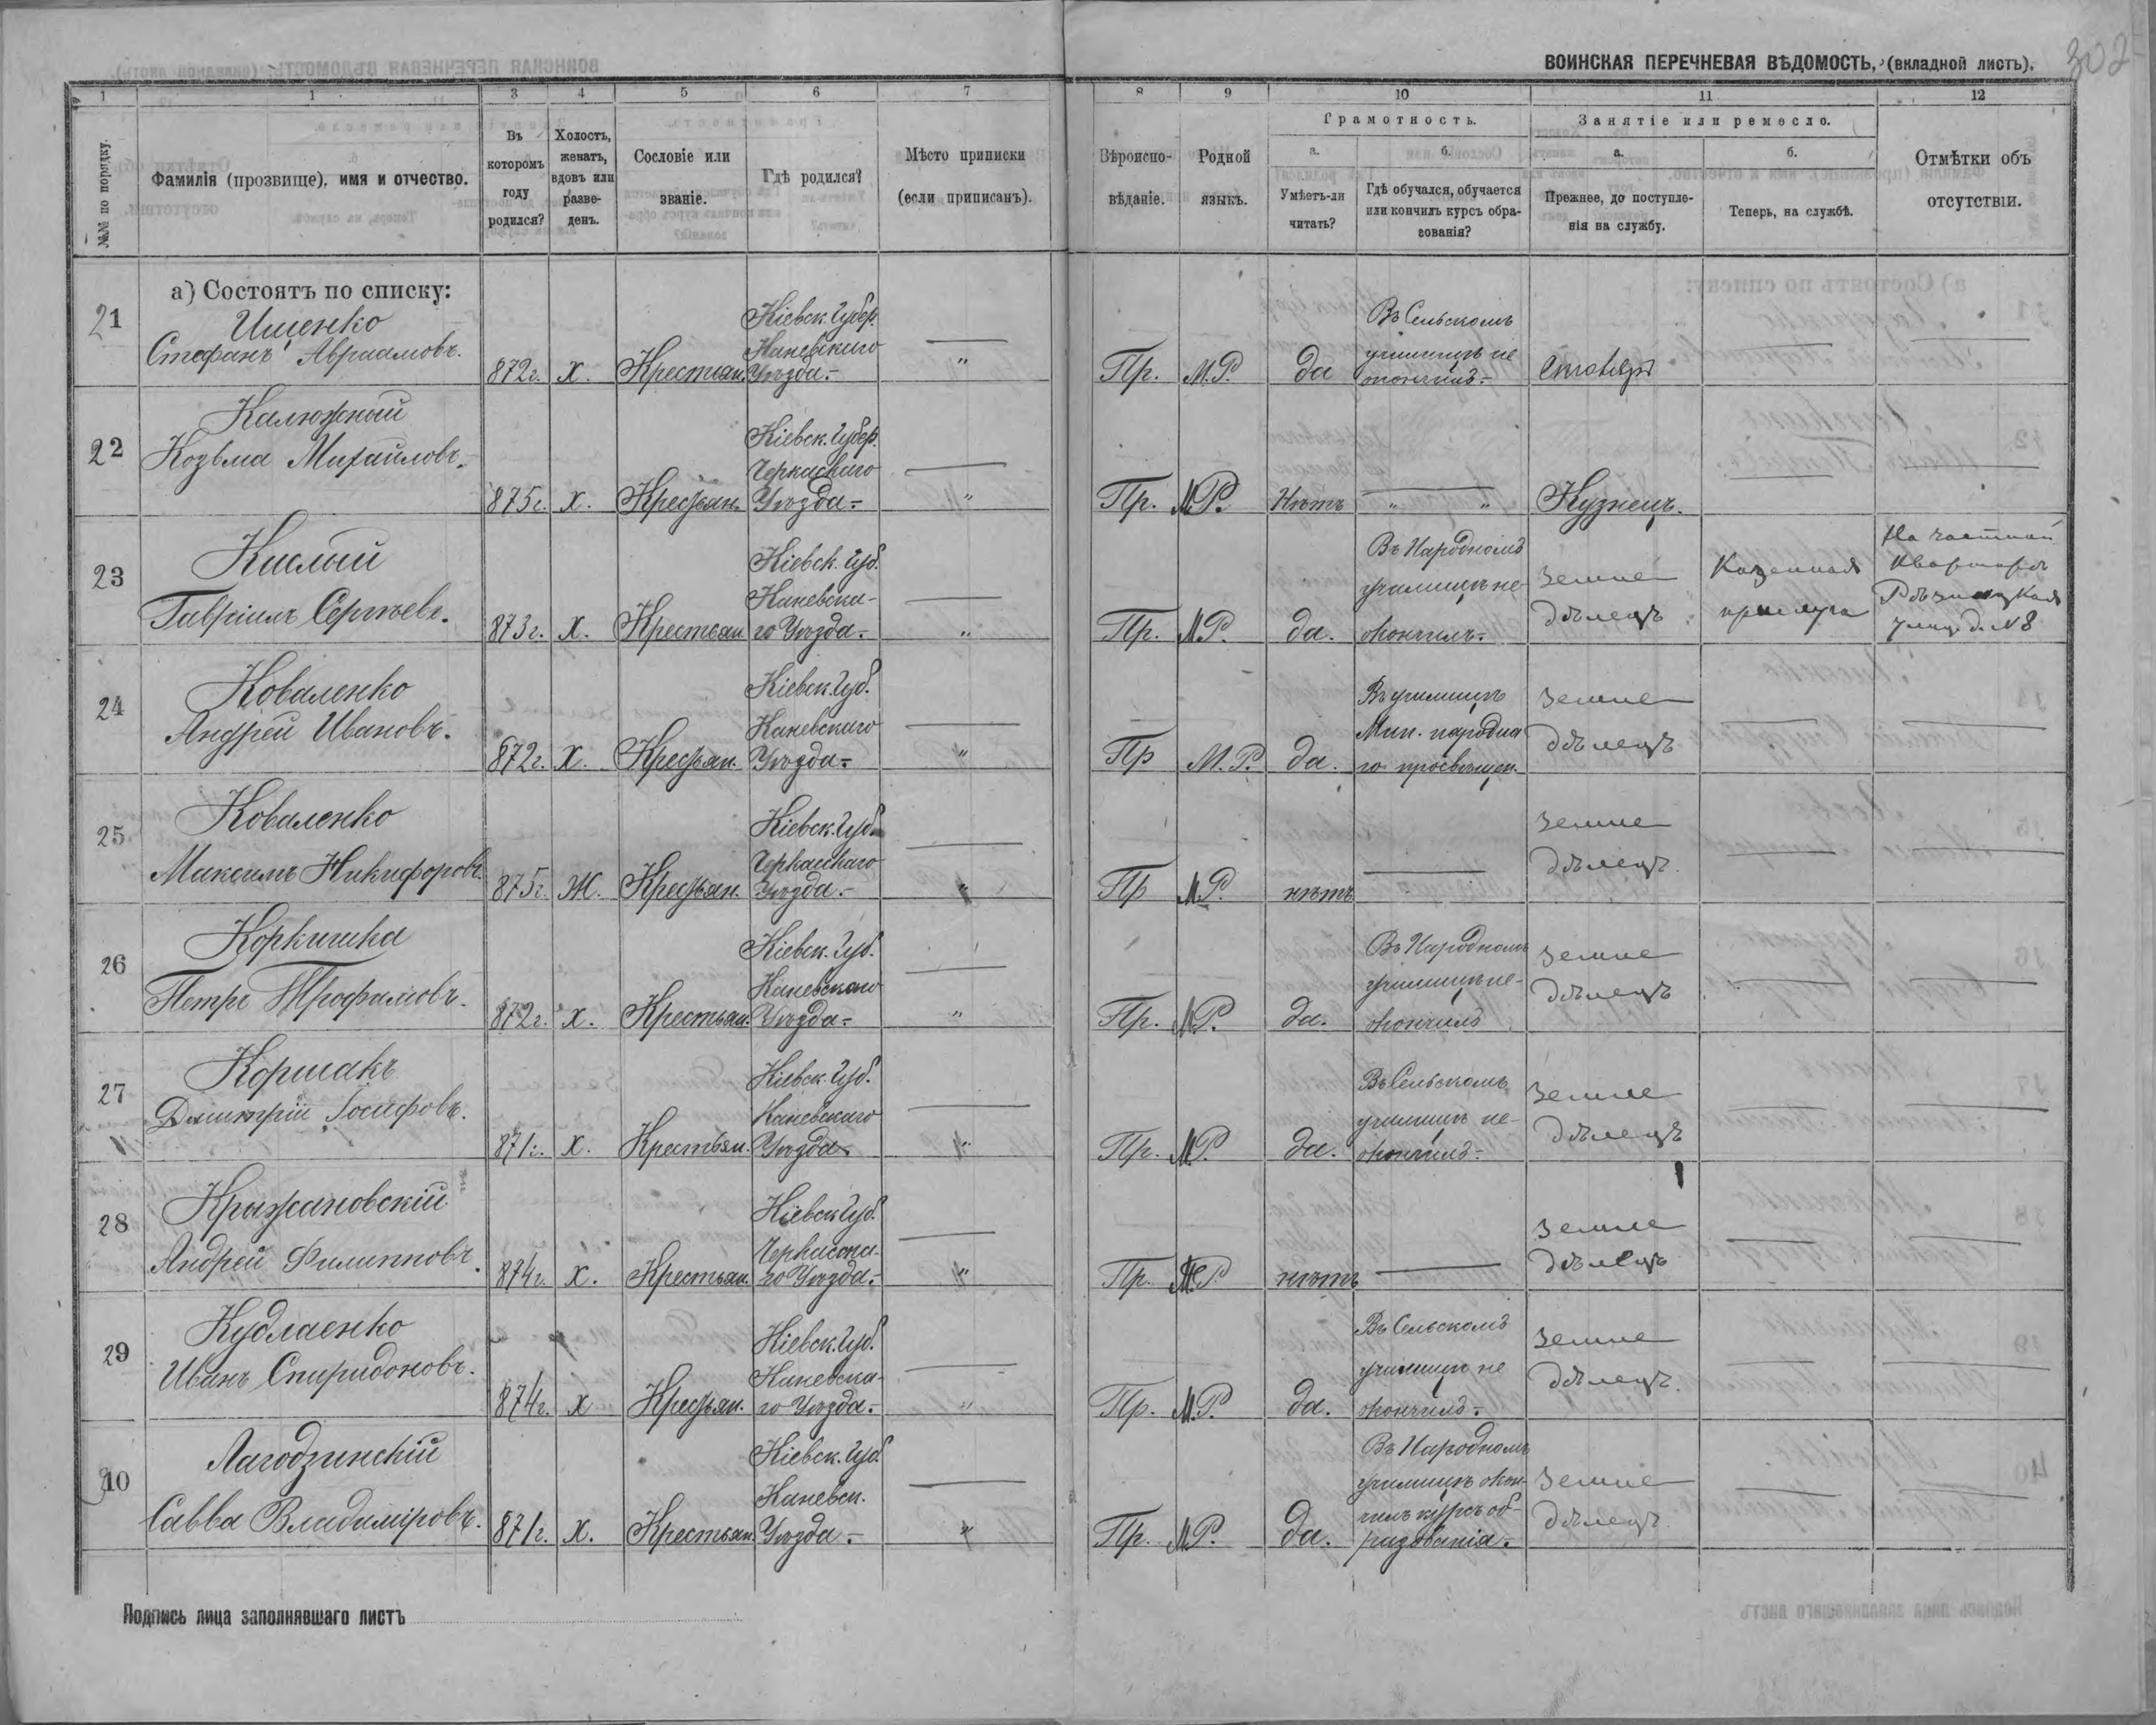 302
ВОИНСКАЯ ПЕРЕЧНЕВАЯ ВѢДОМОСТЬ, (вкладной листъ).
1 1 3 4 5 6 7 8 9 10 11 12
№№ по порядку.
Фамилія (прозвище), имя и отчество.
Въ которомъ году родился?
Холостъ, женатъ, вдовъ или разведенъ.
Сословіе или званіе.
Гдѣ родился?
Мѣсто приписки (если приписанъ).
Вѣроисповѣданіе.
Родной языкъ.
Грамотность.
а.
Умѣетъ-ли читать?
б.
Гдѣ обучался, обучается или кончилъ курсъ образованія?
Занятіе или ремесло.
а.
Прежнее, до поступленія на службу.
б.
Теперь, на службѣ.
Отмѣтки объ отсутствіи.
а) Состоятъ по списку:
21
Ищенко
Стефанъ Авраамовъ.
872г. Х. Крестьян.
Кіевск. Губер.
Каневскаго
Уѣзда.-
" Пр. М.Р. да
Въ Сельскомъ
училищѣ не
окончилъ.-
Столяръ
22
Калюжный
Козьма Михайловъ.
875г. Х. Крестьян.
Кіевск. Губер.
Черкаскаго
Уѣзда-
" Пр. М.Р. Нѣтъ " "
Кузнецъ.
23
Кислый
Гавріилъ Сергѣевъ.
873г. Х. Крестьян
Кіевск. Губ.
Каневска-
го Уѣзда.-
" Пр. М.Р. да.
Въ Народномъ
училищѣ не-
окончилъ.-
Земле
дѣлецъ
Казенная
прислуга
На частной
квартирѣ
Рѣзницкая
улиц. д. №8
24
Коваленко
Андрей Ивановъ.
872г. Х. Крестьян.
Кіевск. Губ.
Каневскаго
Уѣзда-
" Пр М.Р. да.
Въ училищѣ
Мин. народна
го просвѣщен.
Земле
дѣлецъ
25
Коваленко
Максимъ Никифоровъ.
875г. Ж. Крестьян.
Кіевск. Губ.
Черкасскаго
Уѣзда.-
" Пр М.Р. нѣтъ
Земле
дѣлецъ.
26
Коркишка
Петръ Трофимовъ.
872г. Х. Крестьян.
Кіевск. Губ.
Каневскаго
Уѣзда-
" Пр. М.Р. да.
Въ Народномъ
училищѣ не-
окончилъ
Земле
дѣлецъ
27
Коршакъ
Дмитрій Іосифовъ.
871г. Х. Крестьян.
Кіевск. Губ.
Каневскаго
Уѣзда
" Пр. М.Р. да.
Въ Сельскомъ
училищѣ не-
окончилъ-
Земле
дѣлецъ
28
Крыжановскій
Андрей Филипповъ.
874г. Х. Крестьян.
Кіевск. Губ.
Черкаска-
го Уѣзда.
" Пр. М.Р нѣтъ
Земле
дѣлецъ
29
Кудлаенко
Иванъ Спиридоновъ.
874г. Х Крестьян.
Кіевск. Губ.
Каневска-
го Уѣзда.-
" Пр. М.Р. да.
Въ Сельскомъ
училищѣ не
окончилъ-
Земле
дѣлецъ.
Лагодзинскій
Савва Владиміровъ.
871г. Х. Крестьян.
Кіевск. Губ.
Каневск.
Уѣзда.-
" Пр. М.Р. да.
Въ Народномъ
училищѣ окон-
чилъ курсъ об-
разованія.-
Земле
дѣлецъ.
Подпись лица заполнявшаго листъ